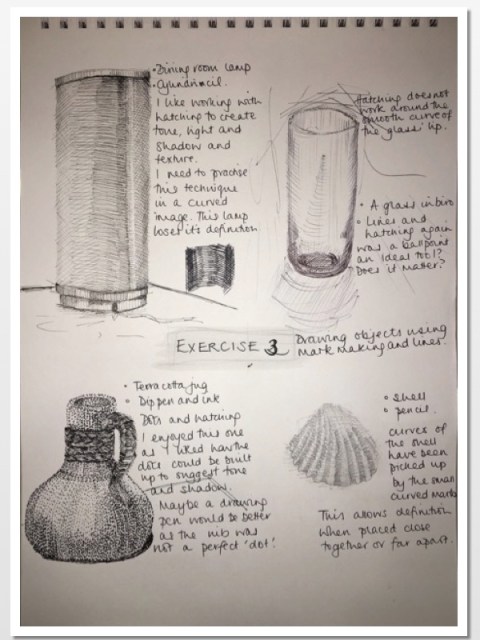 • Dining room lamp
• Cylindrical.
I like working with
hatching to create
tone, light and
shadow and
texture.
I need to practise
this technique
in a curved
image. This lamp
loses it's definition
Hatching does not
work around the
smooth curve of
the glass' lip.
• A glass in biro
• Lines and
hatching again
was a ballpoint
an ideal tool?
Does it matter?
EXERCISE 3
Drawing objects using
Mark Making and lines.
• Terracotta jug
• Dip pen and ink
Dots and hatching
I enjoyed this one
as I liked how the
dots could be built
up to suggest tone
and shadow.
Maybe a drawing
pen would be better
as the nib was
not a perfect 'dot'.
• Shell
• pencil.
curves of
the shell
have been
picked up
by the
curved marks
This allows definition
when placed close
together or far apart.